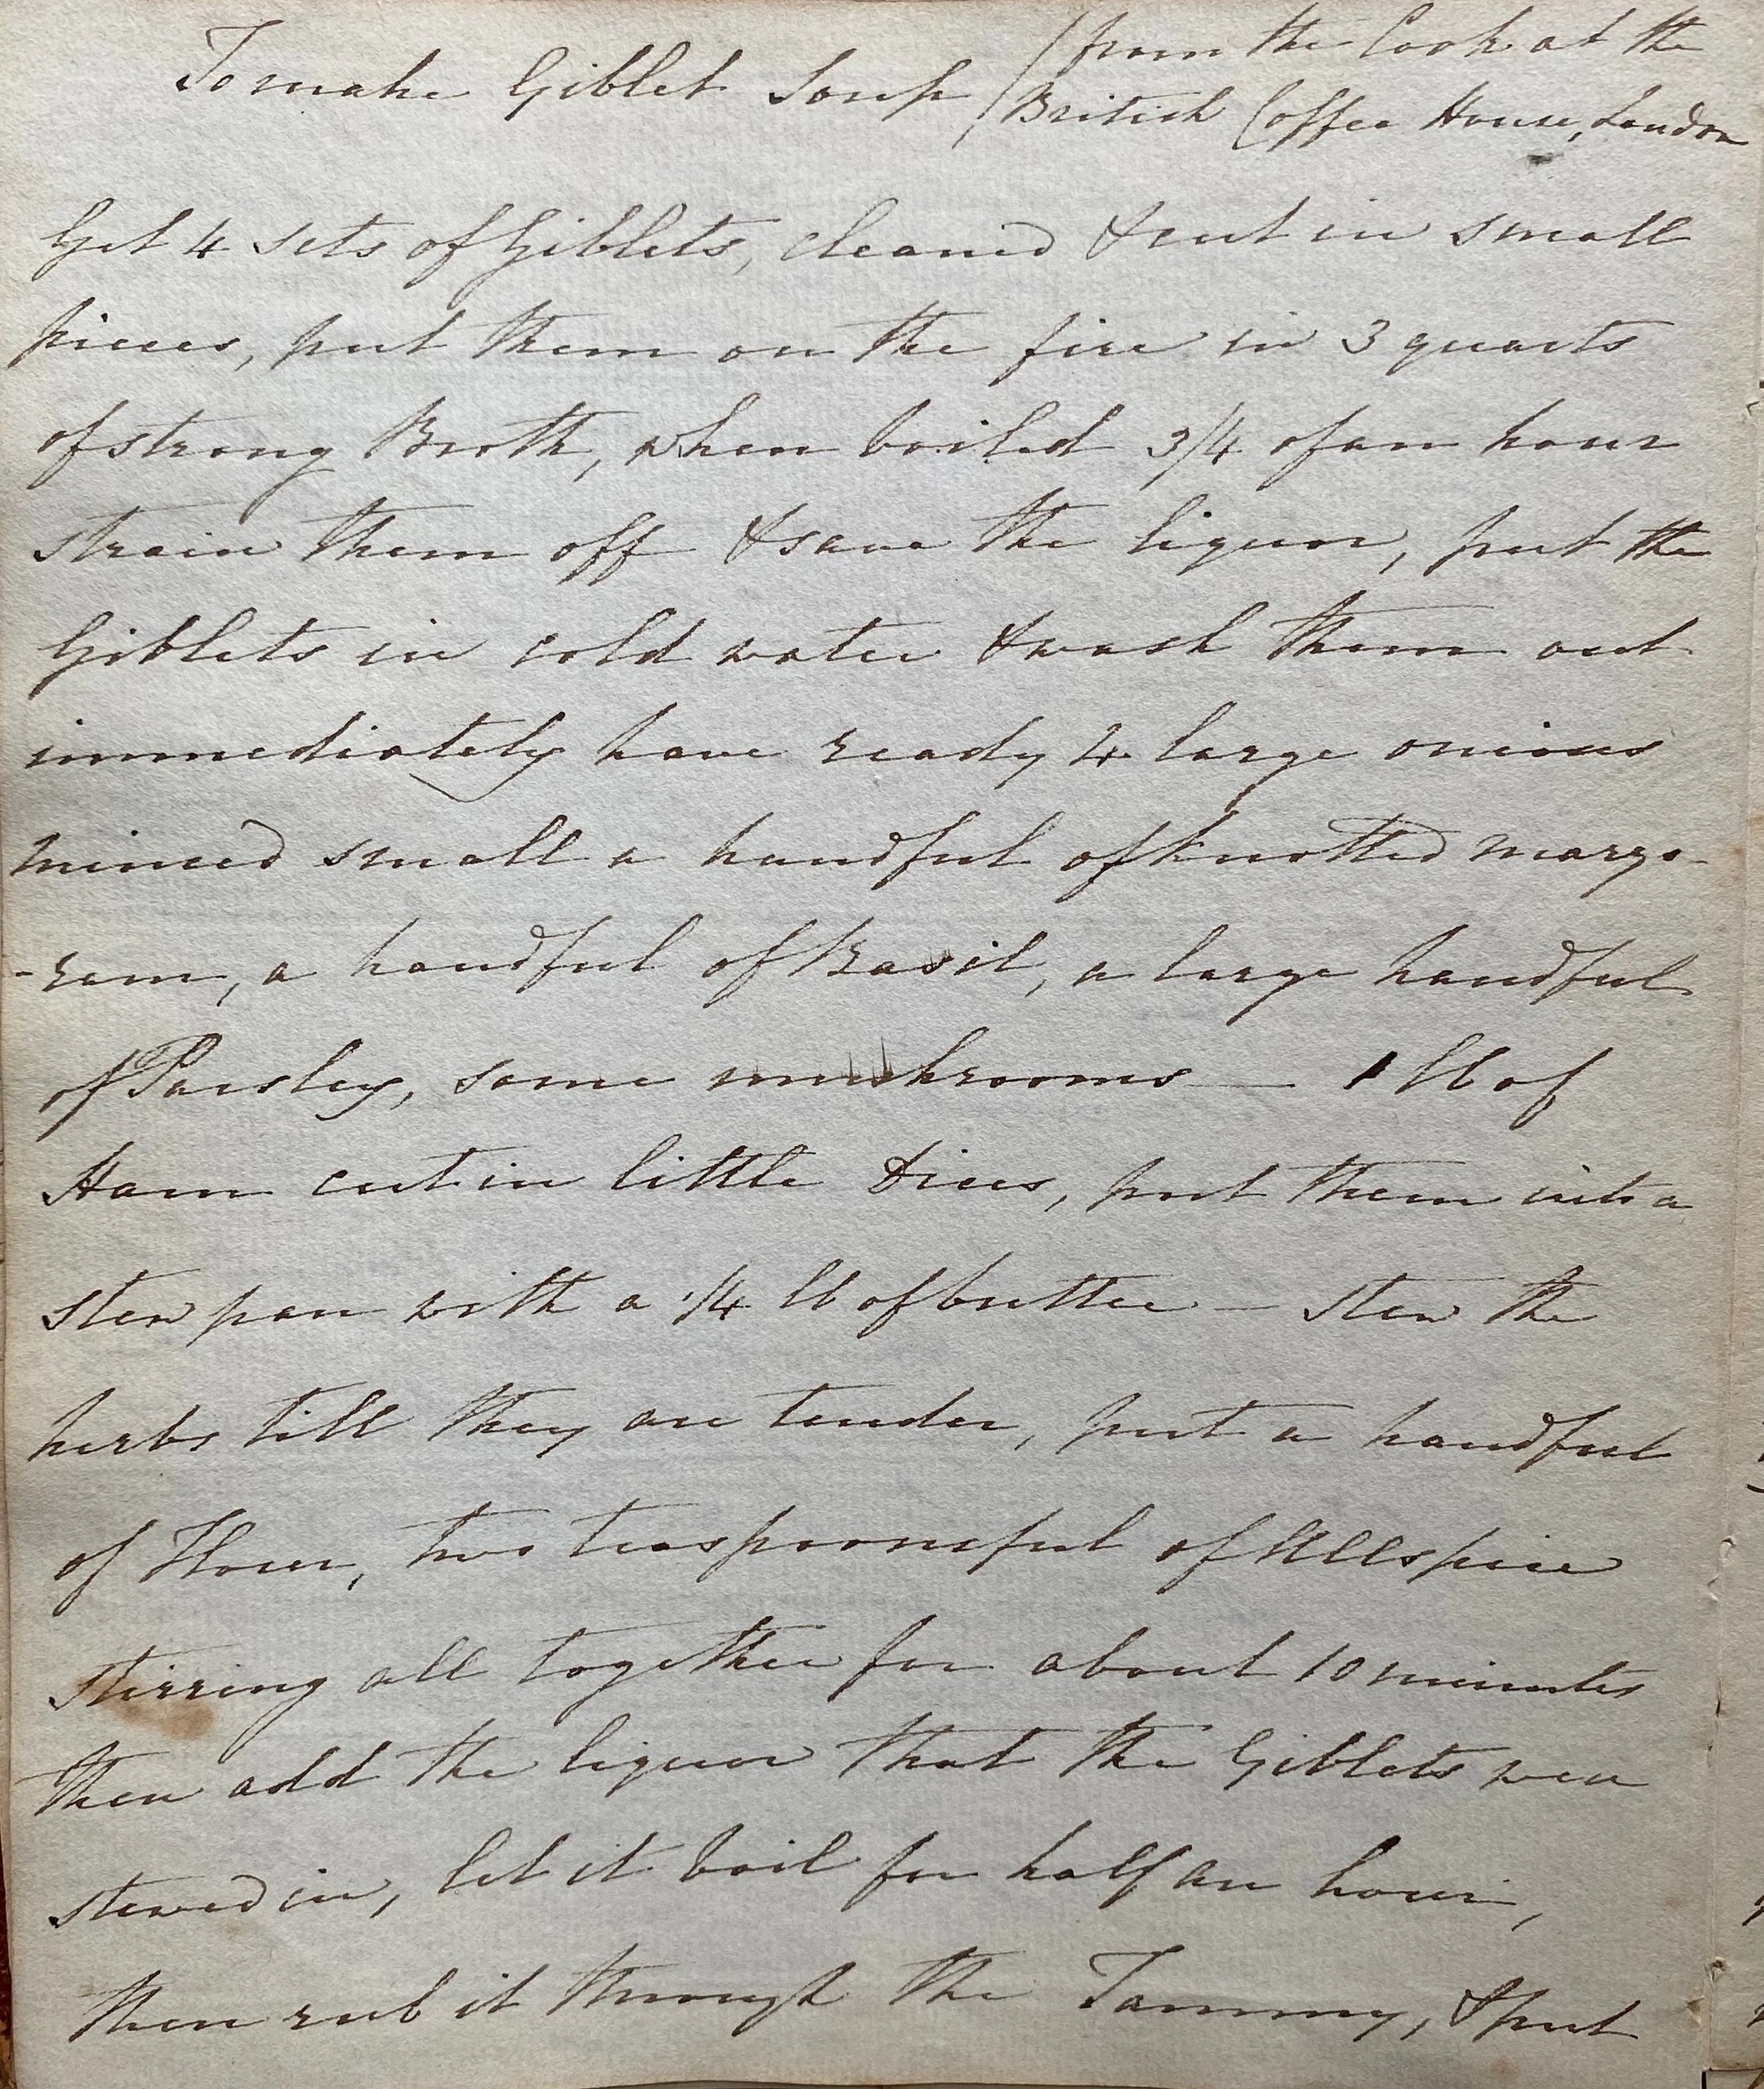 To make Giblet Soup, (from the Cook at the
British Coffee House, London
Get 4 sets of Giblets, cleaned & cut in small
pieces, put them on the fire in 3 quarts
of strong Broth, when boiled 3/4 of an hour
strain them off & save the liquor, put the
Giblets in cold water & wash them out
immediately have ready 4 large onions
minced small a handful of knotted margo-
-ram, a handful of Basil, a large handful
of Parsley, some mushrooms — 1 lb of
Ham cut in little dices, put them into a
stew pan with a 1/4 lb of butter — stew the
herbs till they are tender, put a handful
of Flour, two teaspoonsful of Allspice
stirring all together for about 10 minutes
then add the liquor that the Giblets were
stewed in, let it boil for half an hour,
then rub it through the Tammy, & put